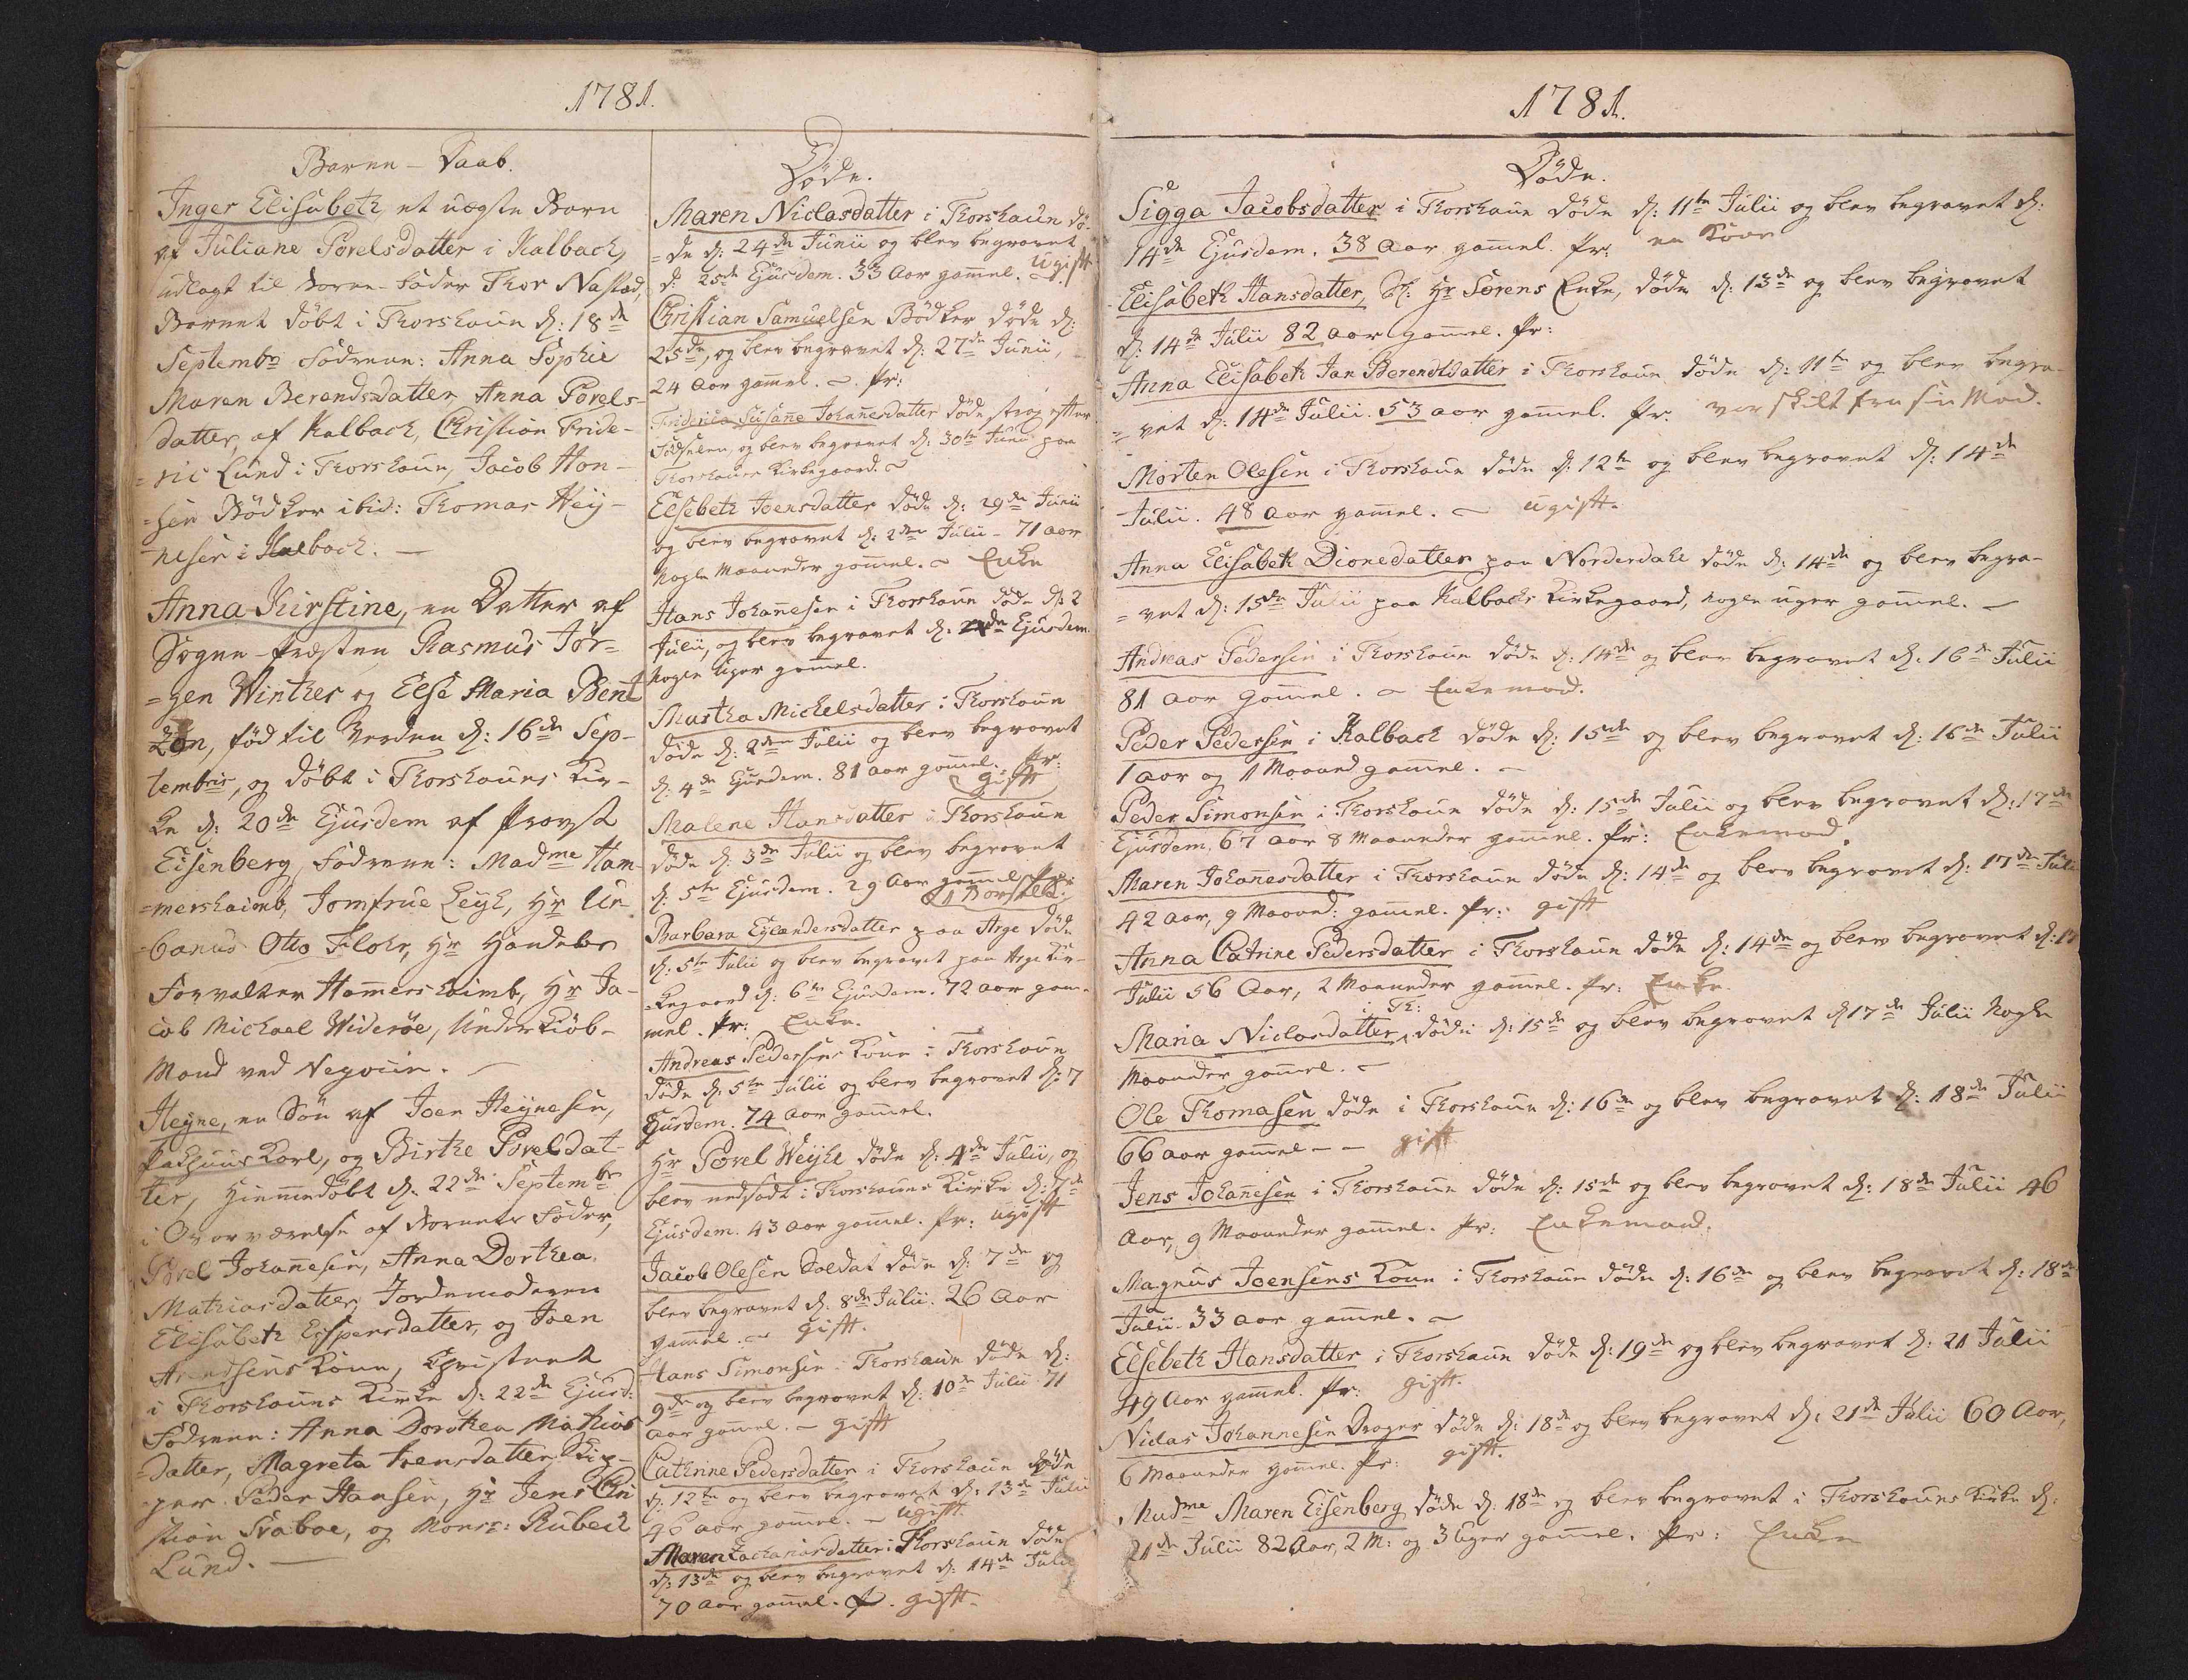 1781.
Barne-Daab.
Inger Elisabeth, et uægte Barn
af Juliane Povelsdatter i Kalbach,
udlagt til Barne-Fader Thor Nastad,
Barnet döbt i Thorshaun d: 18de
Septembr: Fadrene: Anna Sophie
Maren Berendsdatter, Anna Povels-
datter, af Kalbach, Christian Fride-
=ric Lund i Thorshaun, Jacob Han-
=sen Bödker ibid: Thomas Heij-
=nesen i Kalbach. —
Anna Kirstine, en Datter af
Sogne-Præsten Rasmus Jör=
=gen Winther og Else Maria Bent
zon, föd til Verden d: 16de Sep-
tembris, og döbt i Thorshauns Kir-
ke d: 20de Ejusdem af Provst
Eisenberg, Fadrene: Madme Ham-
=mershaimb, Jomfrue Leyh, Hr Ur-
=banus Otto Flohr, Hr Handels
Forvalter Hamershaimb, Hr Ja-
cob Michael Wideröe, Underkiöb-
Mand ved Negotien. —
Heyne, en Sön af Joen Heijnesen,
Pakhuus Karl, og Birthe Poveldat-
ter, Hiemmedöbt d. 22de Septembr
i Overværelse af Barnets Fader,
Povel Johanesen, Anna Dorthea
Mathiasdatter, Jordemoderen
Elisabeth Espensdatter, og Joen
Arentsens Kone, Christnet
i Thorshauns Kirke d: 22de Ejusd:
Fadrene: Anna Dorothea Mathias
=datter, Magreta Joensdatter, Skip-
=per Peder Hansen, Hr Jens Chri
stian Svaboe, og Monsr: Rubeck
Lund. —
Döde.
Maren Niclasdatter i Thorshaun dö-
=de d: 24de Junii og blev begravet
d: 25de Ejusdem. 33 Aar gamel. Ugift
Christian Samuelsen Bödker döde d:
25de, og blev begravet d: 27de Junii,
24 Aar gamel. — Pr:
Friderica Susane Johanesdatter döde strax efter
Födselen, og blev begravet d: 30te Junii paa
Thorshauns Kirkegaard. —
Elsebeth Joensdatter döde d: 29de Junii
og blev begravet d: 2den Julii - 71 aar
nogle Maaneder gamel. — Enke
Hans Johanesen i Thorshaun döde d: 2
Julii, og blev begravet d: 4de Ejusdem.
nogle Uger gamel.
Martha Michelsdatter i Thorshaun
döde d: 2den Julii og blev begravet
d: 4de Ejusdem. 81 aar gamel. Pr:
gift
Malene Hansdatter i Thorshaun
döde d: 3de Julii og blev begravet
d: 5te Ejusdem. 29 Aar gamel. Pr:
Barbara Eylaendersdatter paa Arge döde
d: 5te Julii og blev begravet paa Arge Kir-
=kegaard d: 6te Ejusdem. 72 aar gam-
mel. Pr: Enke.
Andreas Pedersens Kone i Thorshaun
döde d: 5te Julii og blev begravet d: 7
Ejusdem. 74 Aar gamel.
Hr Povel Weyhe döde d: 4de Julii, og
blev nedsadt i Thorshauns Kirke d: 7de
Ejusdem. 43 aar gamel. Pr: ugift
Jacob Olesen Soldat döde d: 7de og
blev begravet d. 8de Julii. 26 Aar
gamel. — gift.
Hans Simonsen i Thorshaun döde d:
9de og blev begravet d: 10de Julii 71
aar gamel. — gift
Cathrine Pedersdatter i Thorshaun döde
d: 12te og blev begravet d: 13de Julii
46 aar gamel. — ugift.
Maren Zachariasdatter i Thorshaun döde
d: 13de og blev begravet d: 14de Julii
70 aar gamel. P. gift.
1781.
Döde.
Sigga Jacobsdatter i Thorshaun döde d: 11te Julii og blev begravet d:
14de Ejusdem. 38 Aar gamel. Pr: en Kone
Elisabeth Hansdatter, Sl: Hr Sörens Enke, döde d: 13de og blev begravet
d: 14de Julii 82 aar gamel. Pr:
Anna Elisabeth Jan Berendtdatter i Thorshaun döde d: 11te og blev begra-
=vet d: 14de Julii. 53 aar gamel. Pr: var skilt fra sin Mand.
Morten Olesen i Thorshaun döde d: 12te og blev begravet d: 14de
Julii. 48 aar gamel. — ugift.
Anna Elisabeth Dionedatter paa Norderdahl döde d: 14de og blev begra-
=vet d: 15de Julii paa Kalbachs Kirkegaard, nogle uger gamel. —
Andreas Pedersen i Thorshaun döde d: 14de og blev begravet d: 16de Julii
81 aar gamel. — Enkemand.
Peder Pedersen i Kalbach döde d: 15de og blev begravet d: 16de Julii
1 aar og 1 Maaned gamel. —
Peder Simonsen i Thorshaun döde d: 15de Julii og blev begravet d: 17de
Ejusdem. 67 aar 8 Maaneder gamel. Pr: Enkemand.
Maren Johanesdatter i Thorshaun döde d: 14de og blev begravet d: 17de Julii
42 aar, 9 Maaned: gamel. Pr: gift
Anna Catrine Pedersdatter i Thorshaun döde d: 14de og blev begravet d: 17
Julii 56 Aar, 2 Maaneder gamel. Pr: Enke.
i Th:
Maria Niclasdatter, döde d: 15de og blev begravet d 17de Julii Nogle
Maaneder gamel. —
Ole Thomasen döde i Thorshaun d: 16de og blev begravet d: 18de Julii
66 aar gamel — gift
Jens Johanesen i Thorshaun döde d: 15de og blev begravet d: 18de Julii 46
Aar, 9 Maaneder gamel. Pr: Enkemand.
Magnus Joensens Kone i Thorshaun döde d: 16de og blev begravet d: 18de
Julii. 33 aar gamel. —
Elsebeth Hansdatter i Thorshaun döde d: 19de og blev begravet d: 21 Julii
49 Aar gamel. Pr: gift.
Niclas Johannesen Drager döde d: 18de og blev begravet d: 21de Julii 60 Aar,
6 Maaneder gamel. Pr: gift.
Madme Maren Eisenberg döde d: 18de og blev begravet i Thorshauns Kirke d:
21de Julii 82 Aar, 2 M: og 3 Uger gamel. Pr: Enke